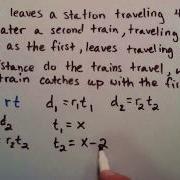 leaves a station traveling
ater a second train, traveling
as the first, leaves traveling
istance do the trains travel,
train catches up with the fir
rt d₁ = r₁t₁ d₂ = r₂t₂
d₂ t₁ = x
= r₂t₂ t₂ = x-2